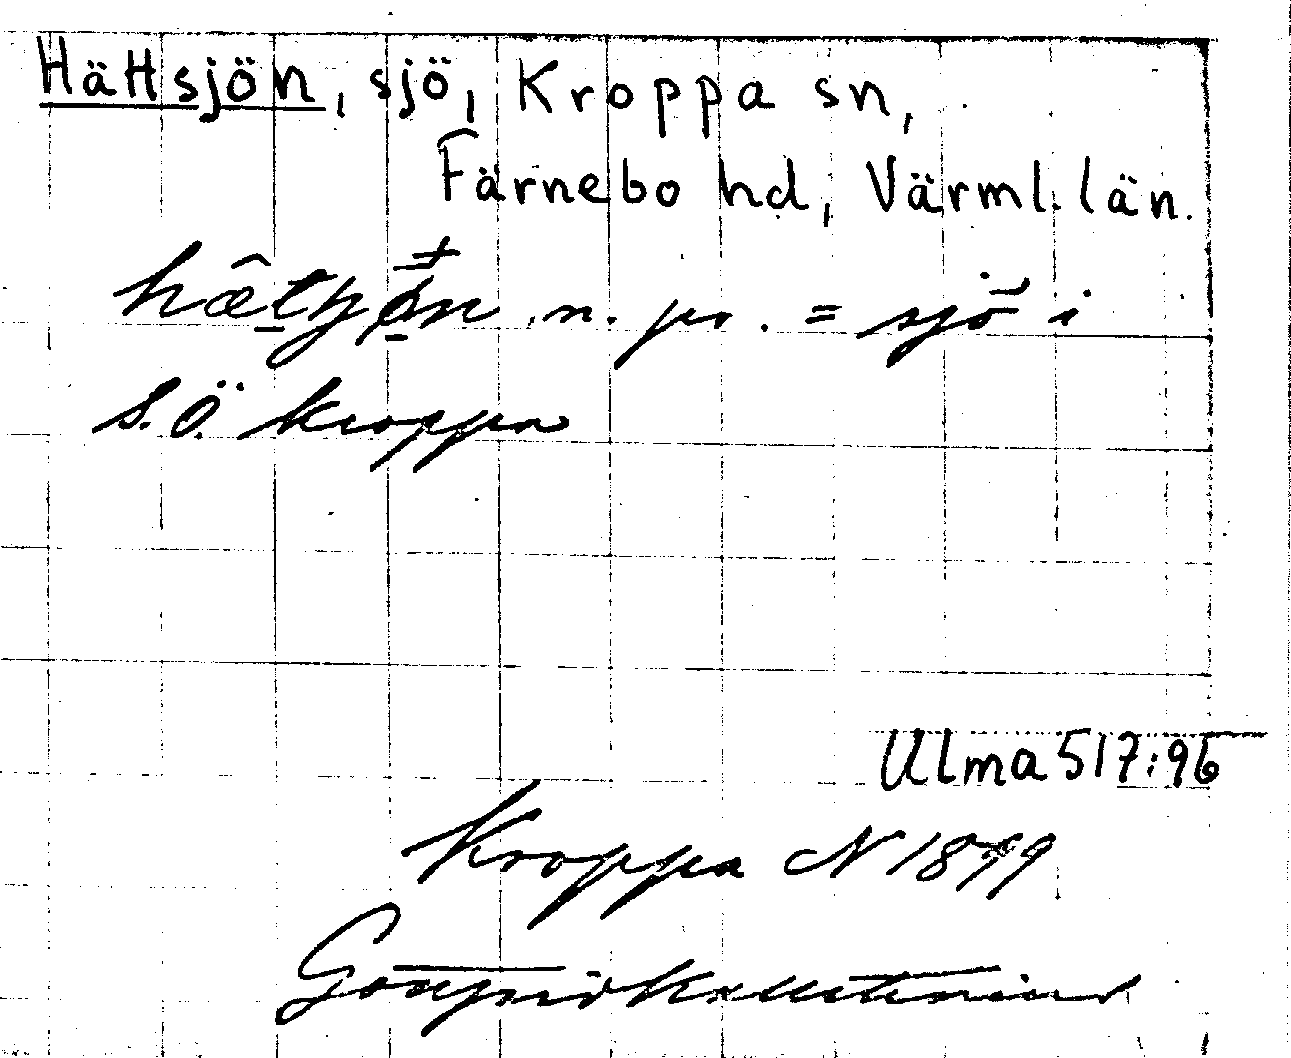 Hättsjön, sjö, Kroppa sn,
Färnebo hd, Värml. län.
n. pr. = sjö i
s.ö. Kroppa
Ulma 517:96
Kroppa N 1899
Gottfrid Kallstenius